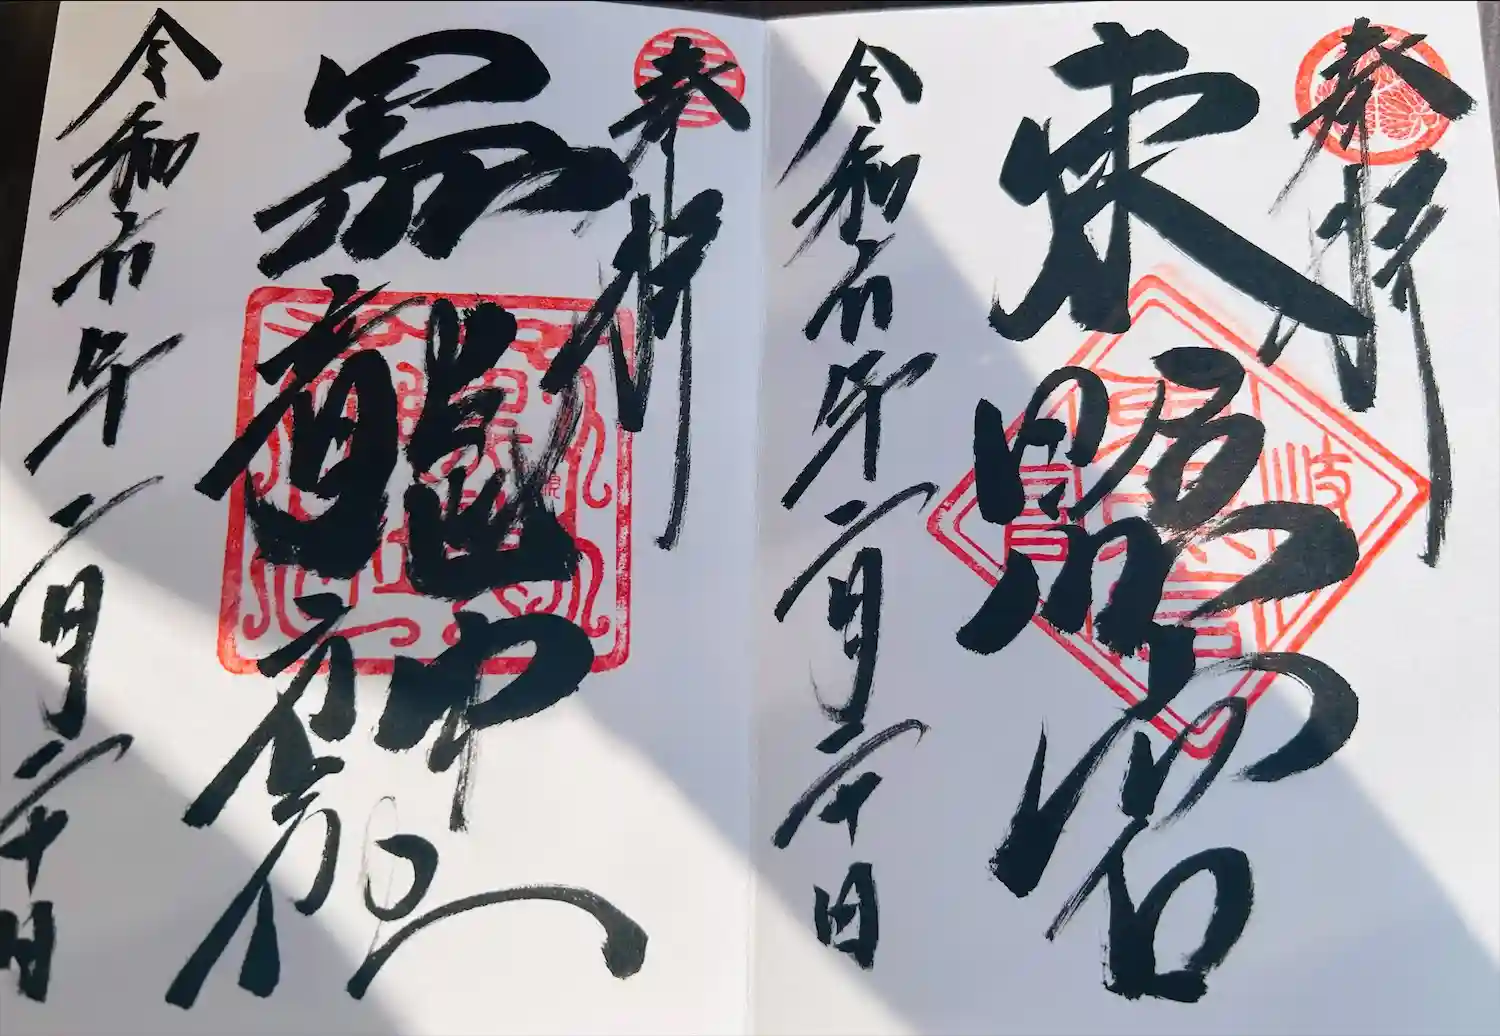 奉拝
東照宮
令和六年二月二十日
奉拝
黒龍神
令和六年二月二十日